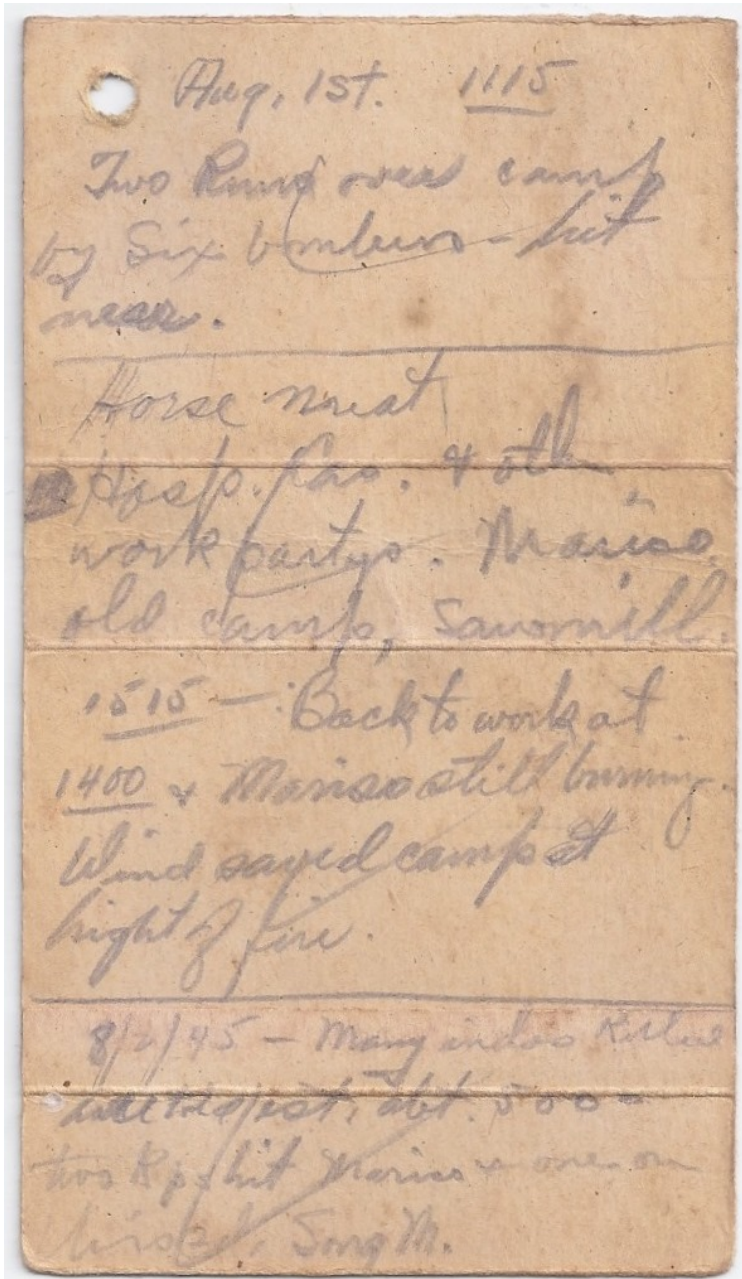 Aug. 1st. 1115
Two Runs over camp
by Six bombers - hit
near.
Horse meat
Hosp. Cas. & oth
work partys. Mariso
old camp, Sawmill.
1515 - Back to work at
1400 & Mariso still burning.
Wind saved camp at
hight of fire.
8/2/45 - Many indos killed
est, abt. 500 -
two hit Mariso & one on
Song M.